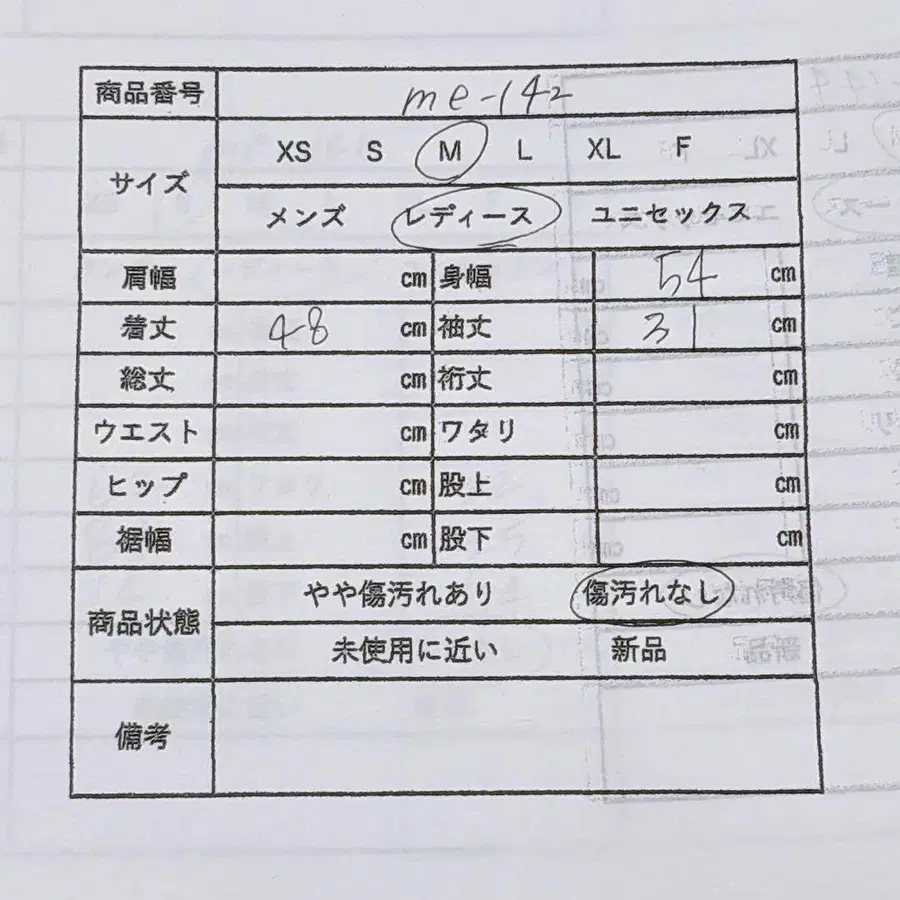 商品番号 me-142
サイズ XS S M L XL F
メンズ レディース ユニセックス
肩幅 cm 身幅 54 cm
着丈 48 cm 袖丈 31 cm
総丈 cm 裄丈 cm
ウエスト cm ワタリ cm
ヒップ cm 股上 cm
裾幅 cm 股下 cm
商品状態 やや傷汚れあり 傷汚れなし
未使用に近い 新品
備考